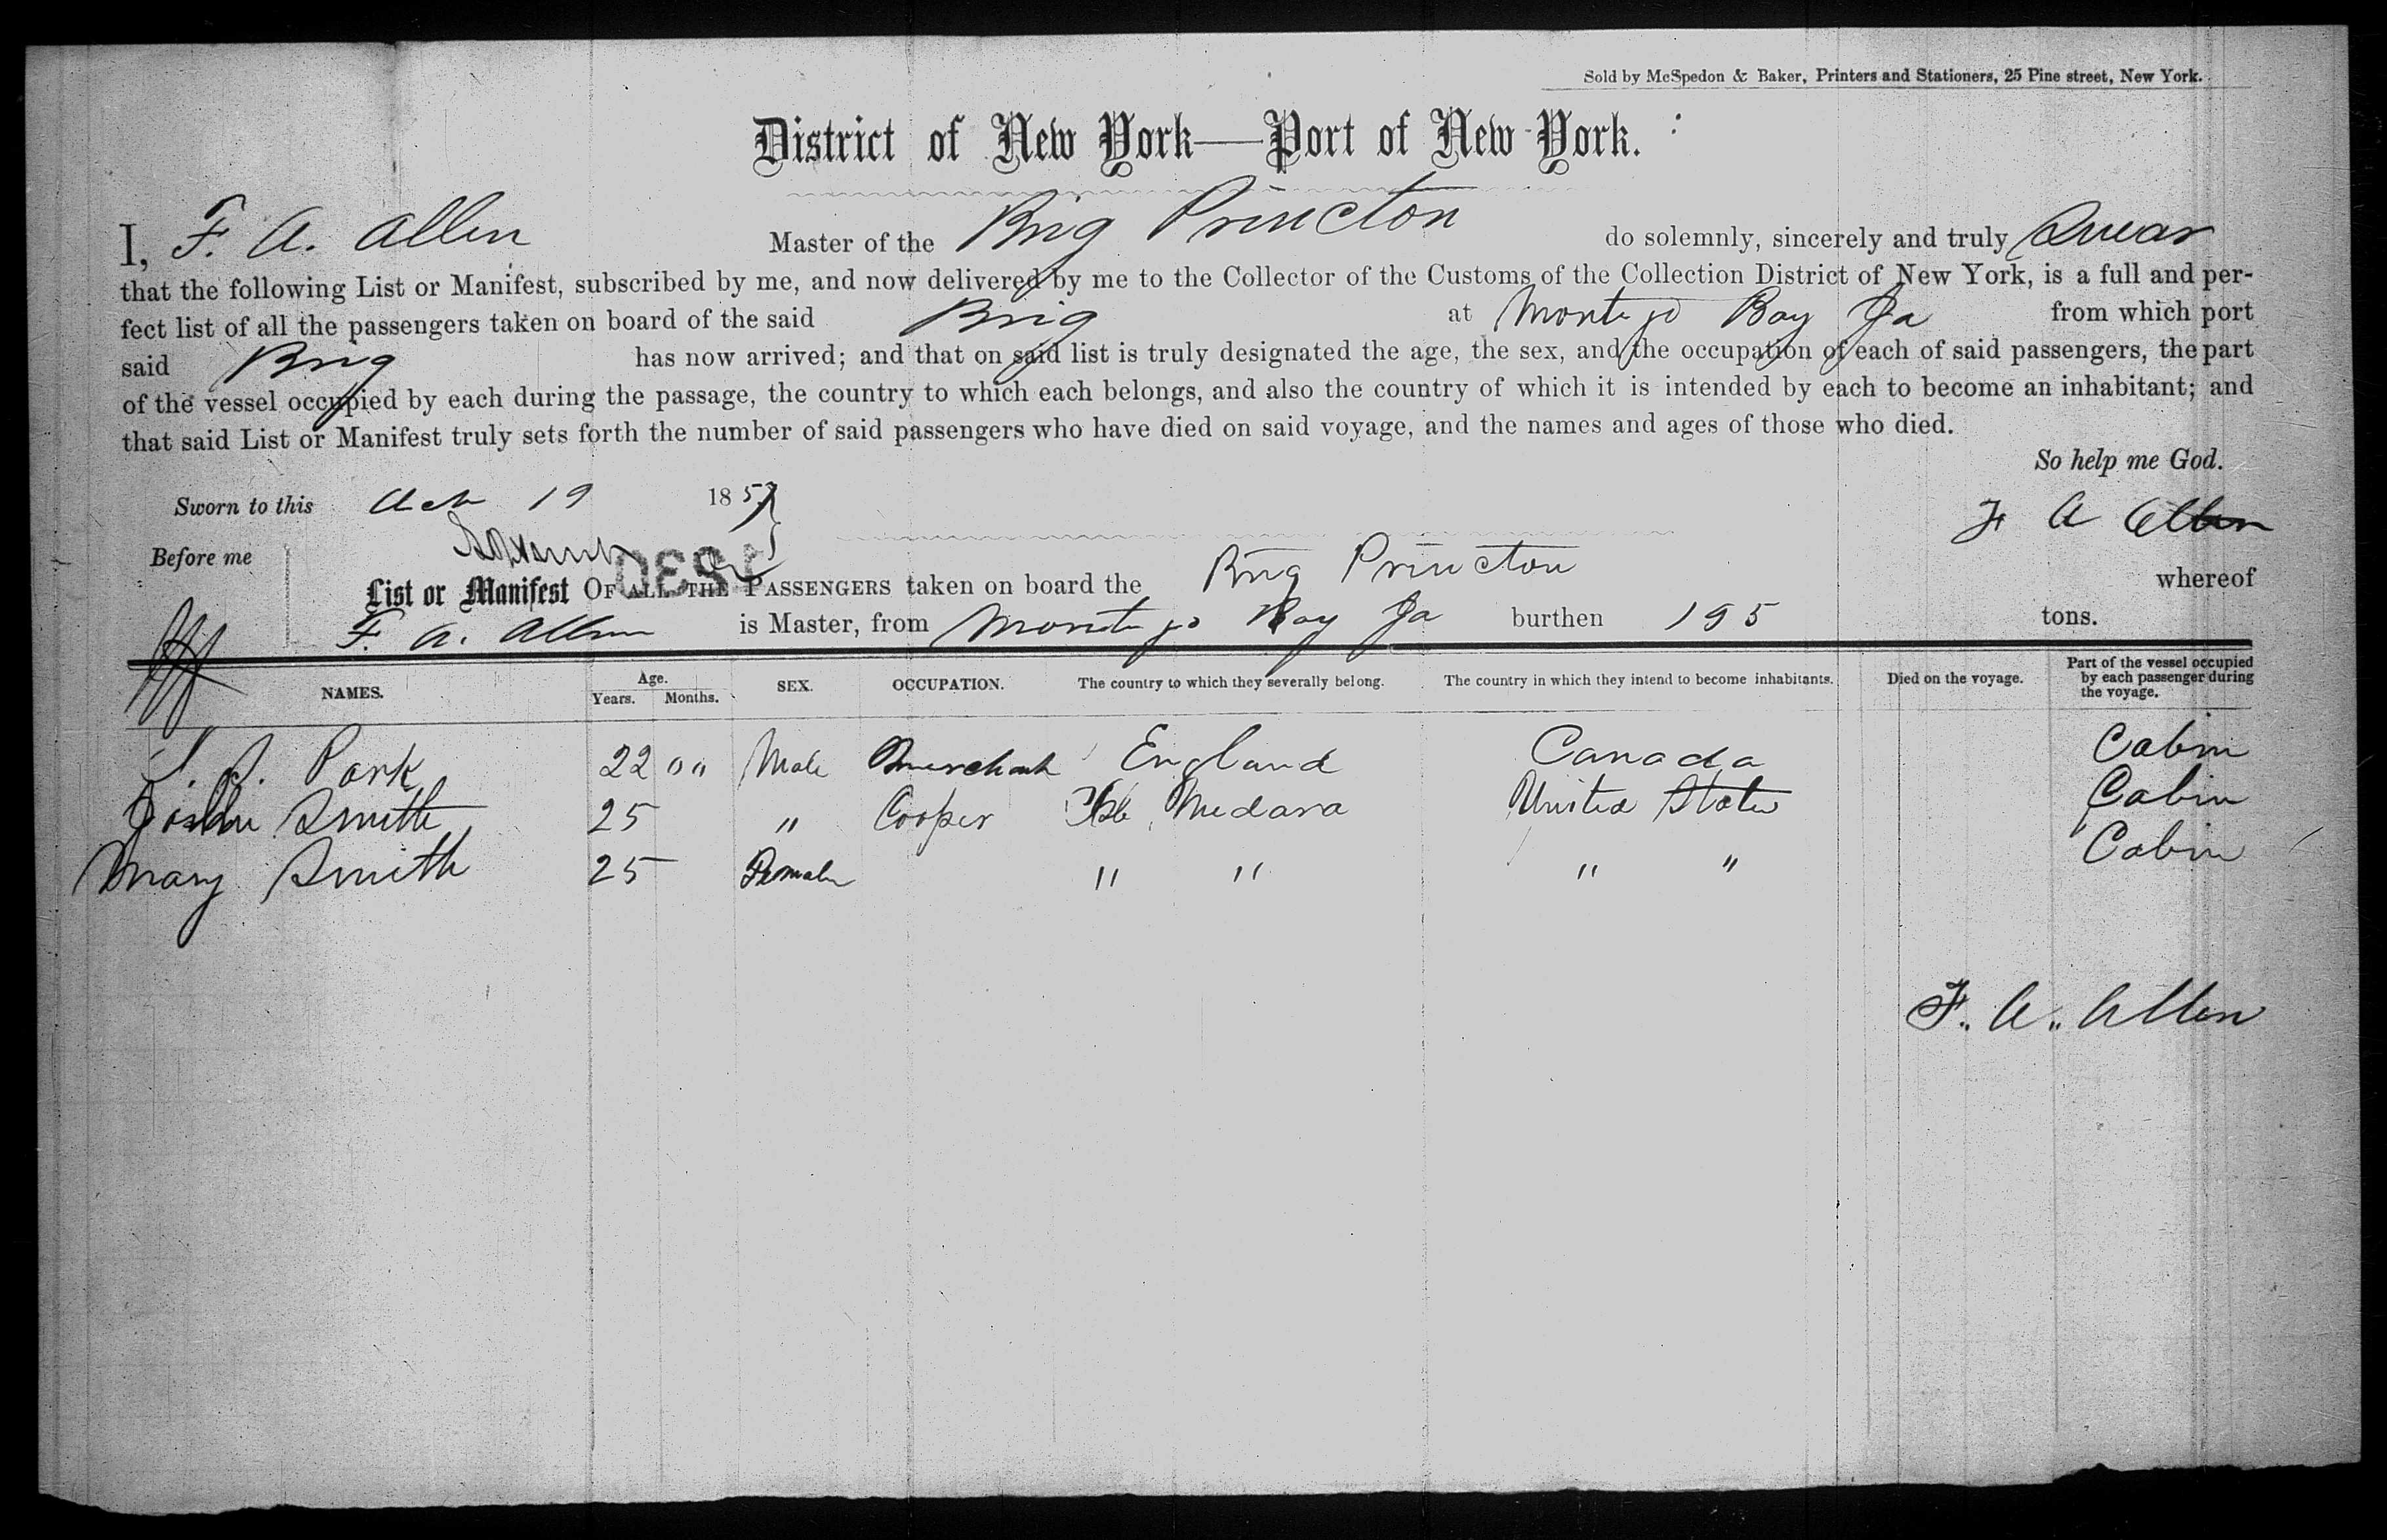 Sold by McSpedon & Baker, Printers and Stationers, 25 Pine street, New York.
District of New York—Port of New York.
I, F. A. Allen Master of the Brig Princton do solemnly, sincerely and truly Swear
that the following List or Manifest, subscribed by me, and now delivered by me to the Collector of the Customs of the Collection District of New York, is a full and per-
fect list of all the passengers taken on board of the said Brig at Montego Bay Ja from which port
said Brig has now arrived; and that on said list is truly designated the age, the sex, and the occupation of each of said passengers, the part
of the vessel occupied by each during the passage, the country to which each belongs, and also the country of which it is intended by each to become an inhabitant; and
that said List or Manifest truly sets forth the number of said passengers who have died on said voyage, and the names and ages of those who died.
So help me God.
Sworn to this 19 1857
F A Allen
Before me
List or Manifest OF ALL THE PASSENGERS taken on board the Brig Princton whereof
F. A. Allen is Master, from Montego Bay Ja burthen 195 tons.
NAMES. Age. Years. Months. SEX. OCCUPATION. The country to which they severally belong. The country in which they intend to become inhabitants. Died on the voyage. Part of the vessel occupied by each passenger during the voyage.
Park 22 00 Male Merchant England Canada Cabin
Smith 25 " Cooper Medara United States Cabin
Mary Smith 25 Female " " " " Cabin
F. A. Allen